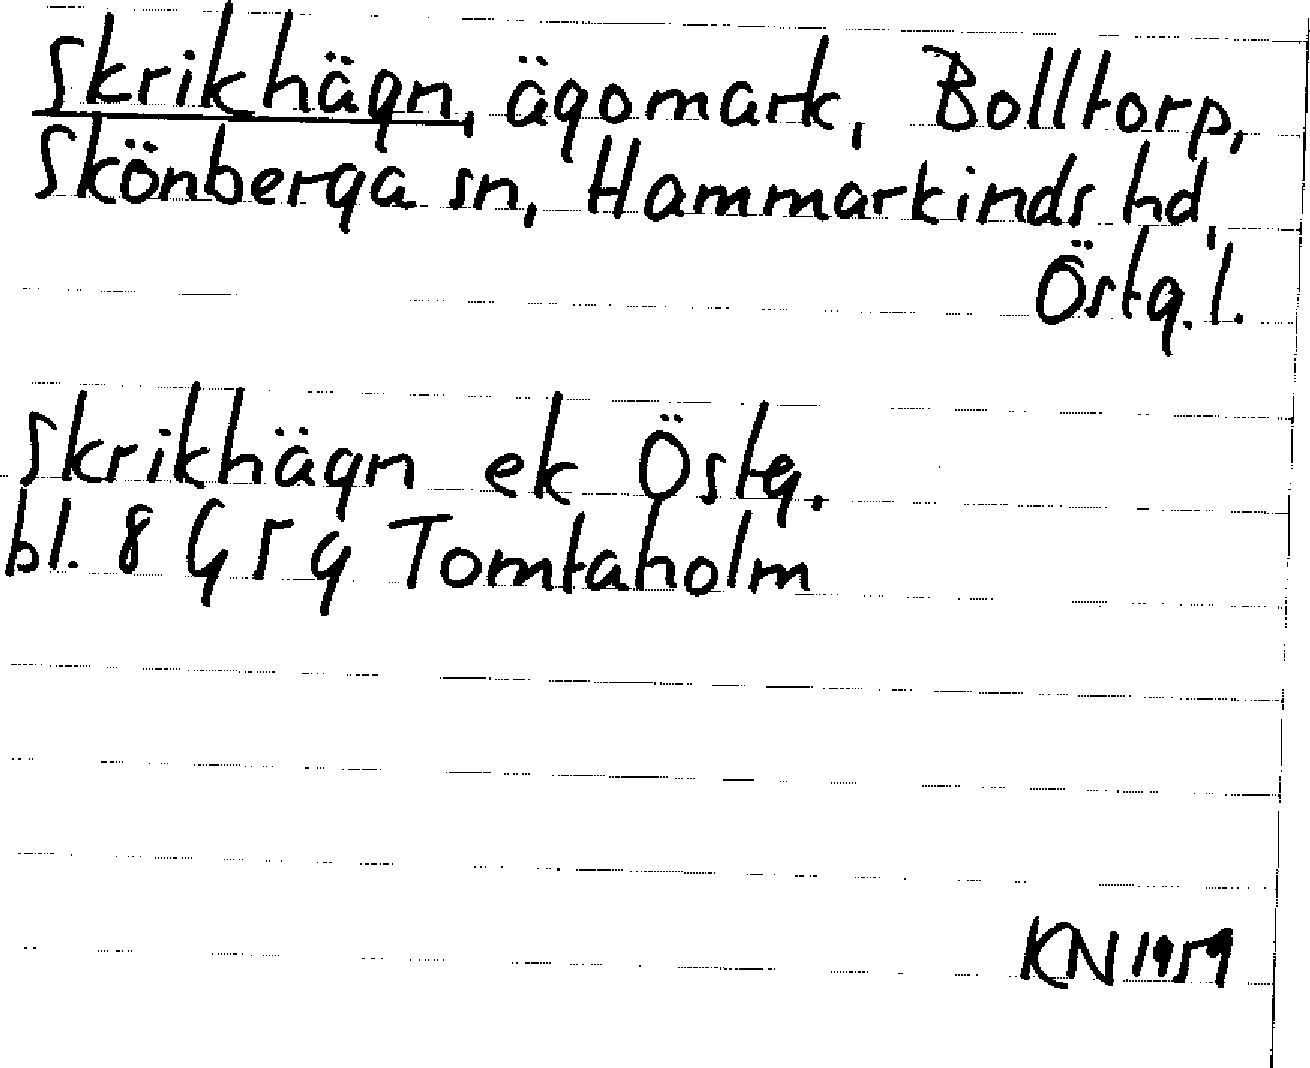 Skrikhägn, ägomark, Bolltorp,
Skönberga sn, Hammarkinds hd,
Östg. l.
Skrikhägn ek Östg.
bl. 8 G 5 g Tomtaholm
KN 1959